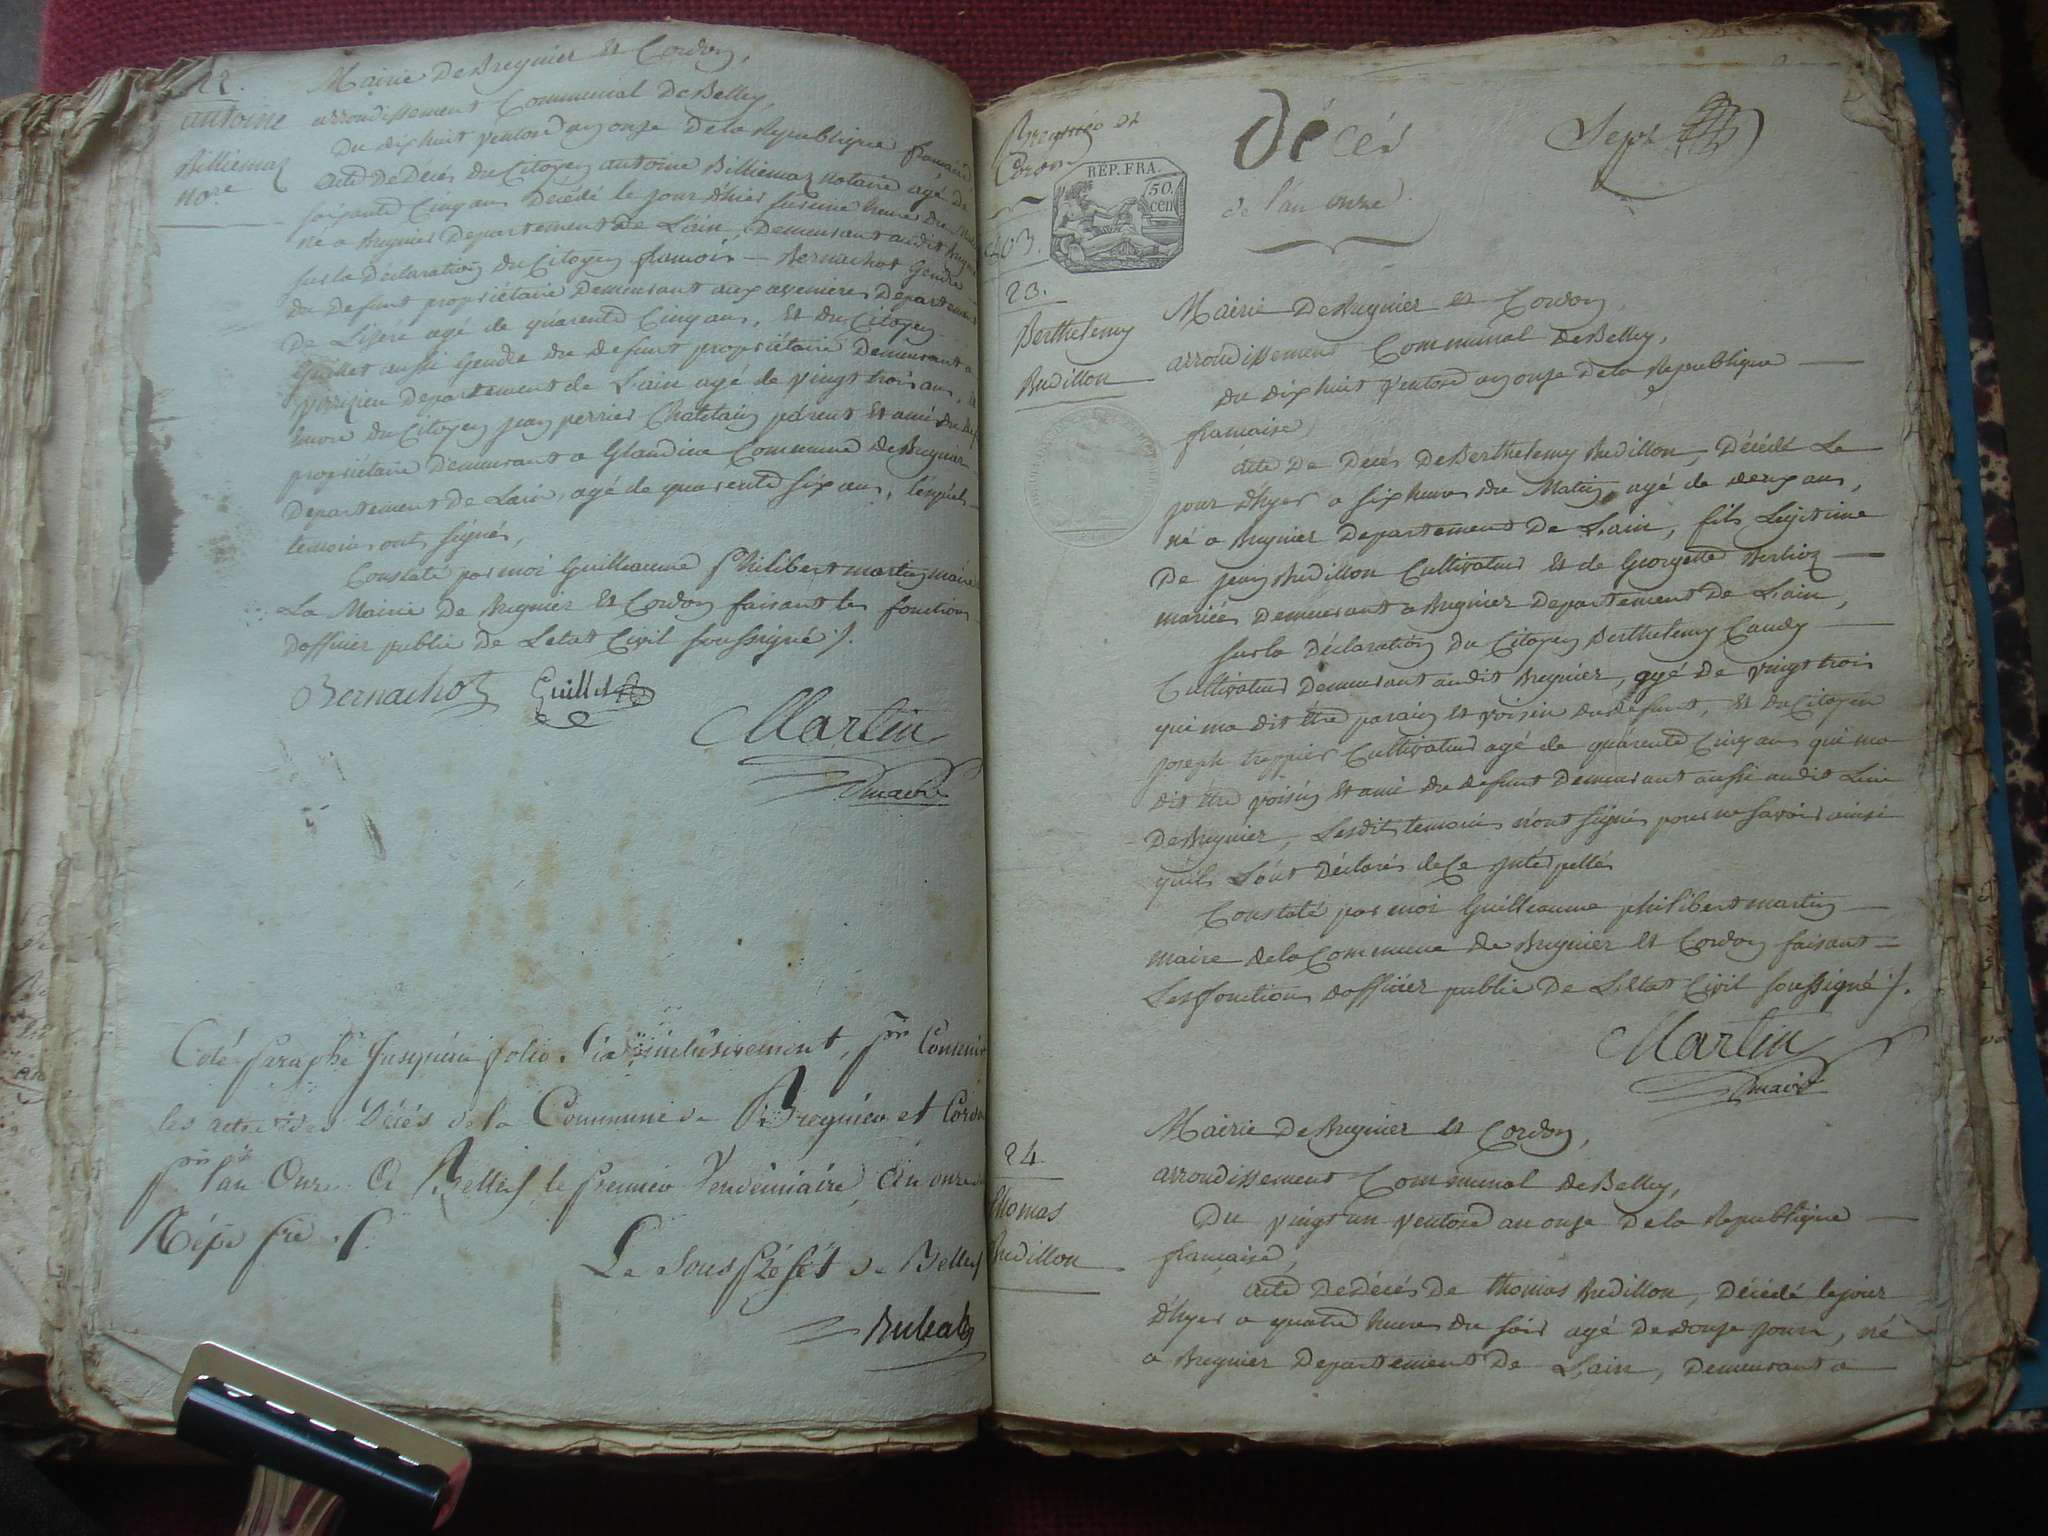 22.
antoine
Billiemaz
no.re
Mairie De Bregnier et Cordon,
arrondissement Communal De Belley,
Du dix huit ventose an onze De la Republique francaise,
acte De Décés Du Citoyen antoine Billiemaz notaire agé de
soixante Cinq ans Decédé le jour d'hier sur une heure Du
né a Bregnier Departement de Lain, Demeurant audit Bregnier
sur la Déclaration Du Citoyen francois - Bernachot Gendre
du defunt propriétaire Demeurant aux avenieres Departement
De Lisere agé de quarente Cinq ans, Et du Citoyen
Guillet aussi Gendre du defunt propriétaire Demeurant a
Departement de Lain agé de vingt trois ans,
Du Citoyen jean perrier Chatelain parent Et ami Du
propriétaire Demeurant a Glandieu Commune De Bregnier
Departement De Lain, agé de quarente six ans, lesquels
temoins ont signés,
Constaté par moi Guilleaume Philibert martin maire
La Mairie de Bregnier Et Cordon faisant les fonctions
Dofficier public De Letat Civil soussigné ./.
Bernachot Guillet
Martin
maire
Coté paraphé jusqu'au folio Six inclusivement, pour Contenir
les actes des Décés de la Commune de Bregnier et Cordon
pour l'an Onze. A Belley le premier Vendémiaire, an onze
Répe fse ./.
Le Sous Préfet de Belley
Rubat
Bregnier et
Cordon
RÉP. FRA.
50.
cen
Décés
de l'an onze.
Sept
23.
Berthelemy
Budillon
Mairie De Bregnier et Cordon,
arrondissement Communal De Belley,
Du dix huit ventose an onze De la Republique
francaise,
acte De Décés De Berthelemy Budillon, Décédé Le
jour d'hyer a six heures du Matin, agé de deux ans,
né a Bregnier Departement De Lain, fils Legitime
De jean Budillon Cultivateur Et de Georgette Berlioz
mariés Demeurant a Bregnier Departement De Lain,
sur la Déclaration Du Citoyen Berthelemy Caudy
Cultivateur Demeurant audit Bregnier, agé De vingt trois
qui ma dit être parain Et voisin du defunt, Et du Citoyen
joseph trappier Cultivateur agé de quarente Cinq ans qui ma
dit être voisin Et ami du defunt Demeurant aussi audit Lieu
De Bregnier, Lesdits temoins n'ont signés pour ne savoir ainsi
qu'ils L'ont Déclarés de Ce interpellés
Constaté par moi Guilleaume philibert martin
maire de la Commune de Bregnier Et Cordon faisant
Les fonctions dofficier public De Letat Civil soussigné ./.
Martin
maire
24.
Thomas
Budillon
Mairie De Bregnier et Cordon,
arrondissement Communal De Belley,
Du vingt un ventose an onze De la Republique
francaise,
acte De décés De thomas Budillon, Décédé le jour
d'hyer a quatre heures du soir agé De douze jours, né
a Bregnier Departement De Lain, Demeurant a